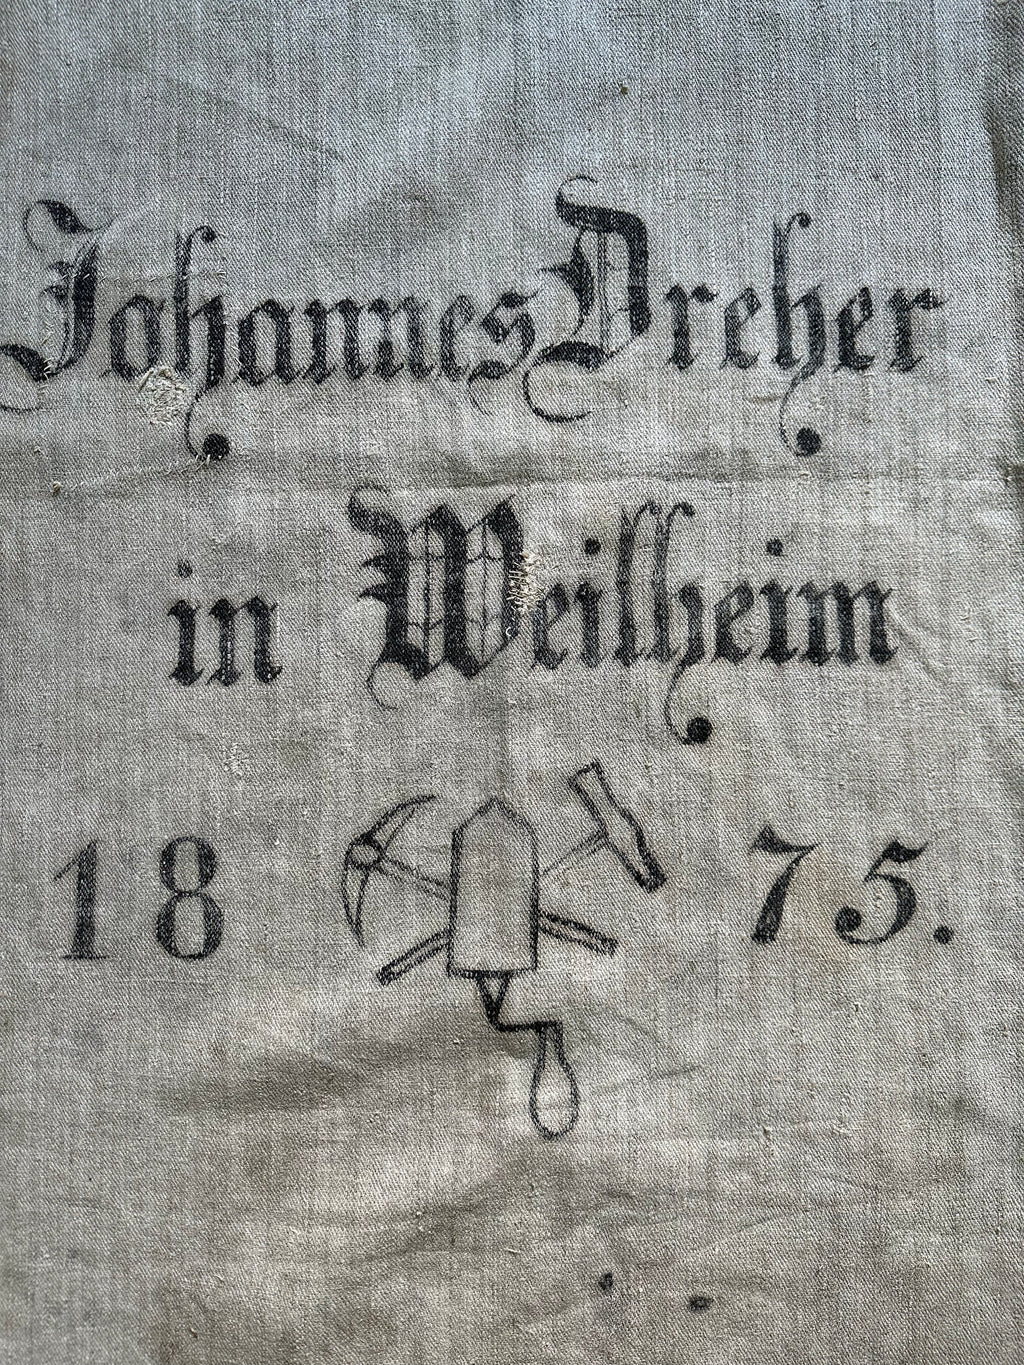 Johannes Dreher
in Weilheim
18 75.